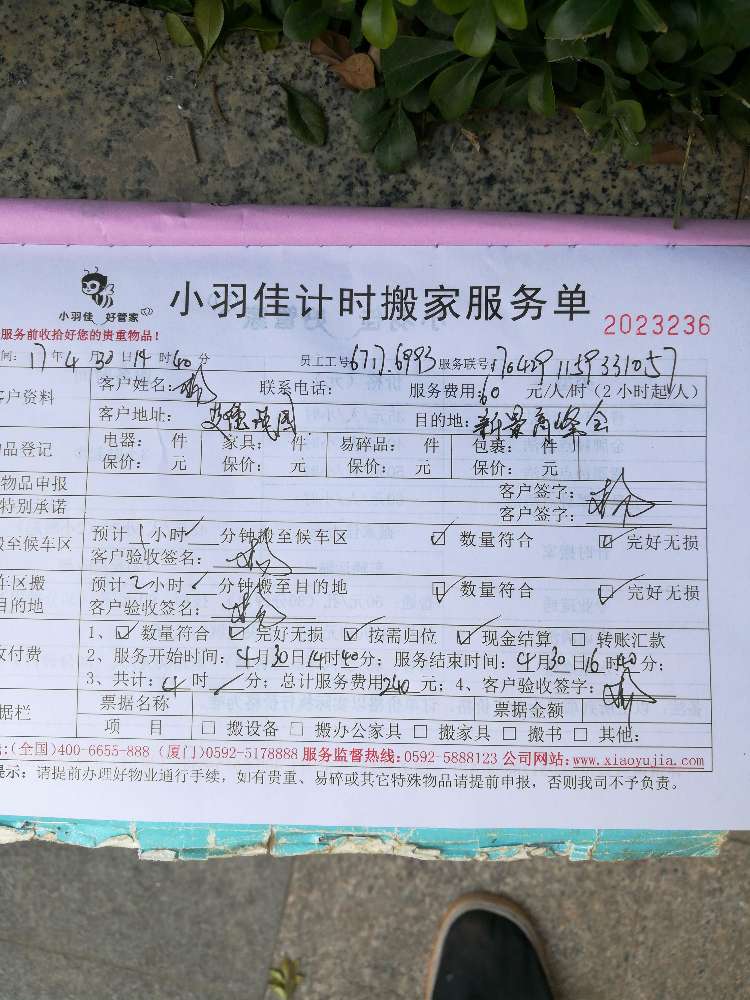 小羽佳 好管家
小羽佳计时搬家服务单
2023236
服务前收拾好您的贵重物品!
间: 17年4月30日14时40分 员工工号6717.6993 服务联号:1704291159331057
客户资料 客户姓名: 联系电话: 服务费用:60 元/人/时(2小时起/人)
客户地址: 目的地: 新景高峰会
品登记 电器: 件 家具: 件 易碎品: 件 包裹: 件
保价: 元 保价: 元 保价: 元 保价: 元
物品申报 客户签字:
特别承诺 客户签字:
搬至候车区 预计1小时 分钟搬至候车区 ☑ 数量符合 ☑ 完好无损
客户验收签名:
车区搬 预计2小时 分钟搬至目的地 ☑ 数量符合 ☑ 完好无损
目的地 客户验收签名:
1、☑ 数量符合 ☑ 完好无损 ☑ 按需归位 ☑ 现金结算 □ 转账汇款
收付费 2、服务开始时间: 4月30日14时40分; 服务结束时间: 4月30日16时40分;
3、共计: 4 时 分; 总计服务费用240元; 4、客户验收签字:
据栏 票据名称 票据金额
项 目 □ 搬设备 □ 搬办公家具 □ 搬家具 □ 搬书 □ 其他:
:(全国)400-6655-888 (厦门)0592-5178888 服务监督热线:0592-5888123 公司网站:www.xiaoyujia.com
提示: 请提前办理好物业通行手续, 如有贵重、易碎或其它特殊物品请提前申报, 否则我司不予负责。